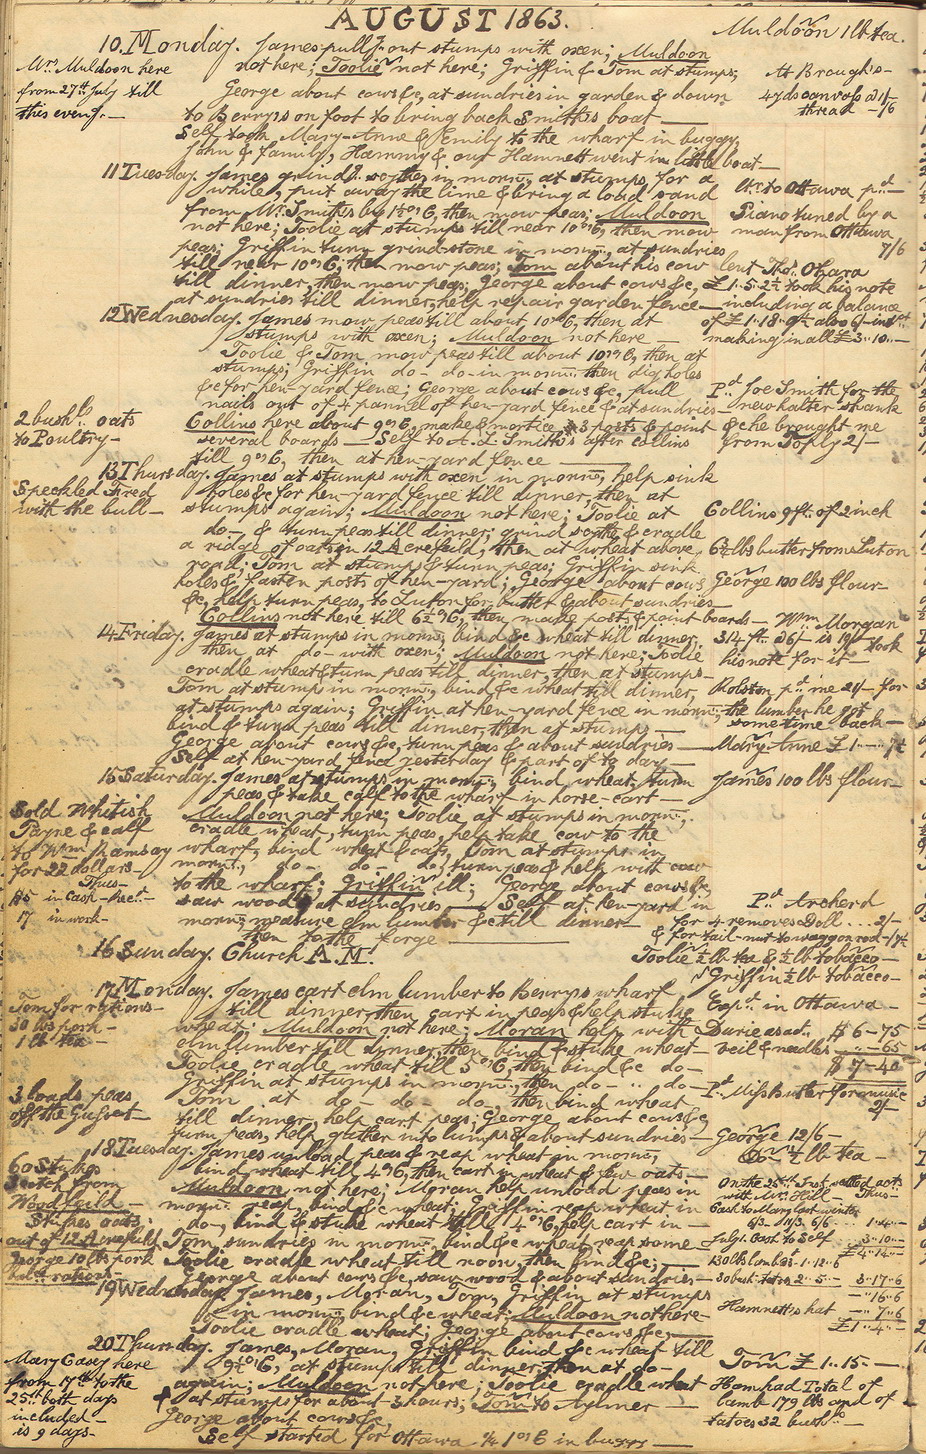 AUGUST 1863.
Muldoon 1 lb tea.
10. Monday. James pull'g out stumps with oxen; Muldoon
Mrs. Muldoon here
not here; Toolie not here; Griffin & Tom at stumps;
At Brough's-
from 27th July till
George about cows &c, at sundries in garden & down
4 yds canvass @ 1/-
this eveng.-
to Berry's on foot to bring back Smith's boat-
thread -/6
Self took Mary-Anne & Emily to the wharf in buggy,
John & family, Hammy & our Hamnett went in little boat-
11 Tuesday. James grind'g scythes in morn'g, at stumps for a
while, put away the lime & bring a load sand
to Ottawa pd-
from Mr. Smith's by 1½ o'C, then mow peas; Muldoon
Piano tuned by a
not here; Toolie at stumps till near 10 o'C, then mow
man from Ottawa
peas; Griffin turn grind-stone in morn'g, at sundries
7/6
till near 10 o'C, then mow peas; Tom about his cow
lent Thos. Ohara
till dinner, then mow peas; George about cows &c,
£1..5..2½ took his note
at sundries till dinner, help repair garden fence-
including a balance
12 Wednesday. James mow peas till about 10 o'C, then at
of £1..18..9½ also 6/- intst
stumps with oxen; Muldoon not here-
making in all £3..10..-
Toolie & Tom mow peas till about 10 o'C, then at
stumps; Griffin do- do- in morn'g then dig holes
&c for hen-yard fence; George about cows &c, pull
Pd. Joe Smith for the
nails out of 4 pannel of hen-yard fence & at sundries-
new halter shank
2 bushls. oats
Collins here about 9 o'C, make & mortice 3 posts & point
& che brought me
to Poultry-
several boards- Self to A.L. Smith's after Collins
from 2/-
till 9 o'C, then at hen-yard fence-
13 Thursday. James at stumps with oxen in morn'g, help sink
Speckled Fred
holes &c for hen-yard fence till dinner, then at
with the bull-
stumps again; Muldoon not here; Toolie at
Collins 9 ft. of 2 inch
do- & turn peas till dinner; grind scythe & cradle
a ridge of oats in 12 Acre feild, then at wheat above
6½ lbs butter from Luton
road; Tom at stumps & turn peas; Griffin sink
holes & fasten posts of hen-yard; George about cows
George 100 lbs flour-
&c, help turn peas, to Luton for butter & about sundries-
Collins not here till 6½ o'C, then make posts, & point boards-
Wm. Morgan
14 Friday. James at stumps in morn'g, bind &c wheat till dinner,
314 ft. @ 6/- is 19/- took
then at do- with oxen; Muldoon not here; Toolie
his note for it-
cradle wheat & turn peas till dinner, then at stumps-
Tom at stumps in morn'g, bind &c wheat till dinner,
Rolston pd. me 24/- for
at stumps again; Griffin at hen-yard fence in morn'g,
the lumber he got
bind & turn peas till dinner, then at stumps-
some time back-
George about cows &c, turn peas & about sundries-
Mary-Anne £1-
Self at hen-yard fence yesterday & part of to day-
15 Saturday. James at stumps in morn'g, bind wheat, turn
James 100 lbs flour-
peas & take calf to the wharf in horse-cart-
Sold Whitish
Muldoon not here; Toolie at stumps in morn'g,
Payne & calf
cradle wheat, turn peas, help take cow to the
to Wm Ramsay
wharf, bind wheat & oats; Tom at stumps in
for 22 dollars-
morn'g, do- do- do, turn peas & help with cow
Thus-
to the wharf; Griffin ill; George about cows &c,
$5 in Cash - Recd.
saw wood, at sundries- Self at hen-yard in
Pd. Archerd
17 in work-
morn'g, measure elm lumber &c till dinner-
for 4 removes Doll .... 2/-
then to the Forge-
& for tail-nut to waggon rod -/7½
16 Sunday. Church A.M.
Toolie ½ lb tea & ½ lb tobacco-
Griffin ½ lb tobacco-
17 Monday. James cart elm lumber to Berry's wharf
Tom for rations-
till dinner, then cart in peas & help stuke
Expd. in Ottawa-
30 lbs pork-
wheat; Muldoon not here; Moran help with
$6-75
1 lb tea-
elm lumber till dinner, then bind & stuke wheat-
veil & needles -65
Toolie cradle wheat till 5 o'C, then bind &c do-
$7-40
Griffin at stumps in morn'g, then do- .. do-
3 loads peas
Tom at do- do- do, then bind wheat
Pd. Miss Hunter for music
off the Gusset-
till dinner, help cart peas; George about cows &c,
2/-
turn peas, help gather into lumps & about sundries-
George 12/6-
18 Tuesday. James unload peas & reap wheat in morn'g,
½ lb tea-
60 Stukes
bind wheat till 4 o'C, then cart in wheat & few oats-
Scotch from
Muldoon not here; Moran help unload peas in
On the 25th Inst. settled accts
Wood feild-
morn'g, reap, bind &c wheat; Griffin reap wheat in
with Mrs. Hill- Thus-
Stukes oats
do-, bind & stuke wheat till 4 o'C, help cart in-
Cash to Mary last winter
out of 12 Acre feild,
Tom sundries in morn'g, bind &c wheat, reap some-
6/3 .. 11/3 6/6 ... 1..4..-
George 10 lbs pork
Toolie cradle wheat till noon, then bind &c;-
July 1. Cash to Self .. 3..10..-
half rations-
George about cows &c, saw wood & about sundries-
£4..14..-
30 lbs lamb @ 1..12..6
19 Wednesday. James, Moran, Tom, Griffin at stumps
30 bush. tatoes 2..5..- 3..17..6
in morn'g, bind &c wheat; Muldoon not here-
-..16..6
Toolie cradle wheat; George about cows &c,-
Hamnett's hat -..7..6
£1..4..-
20 Thursday. James, Moran, Griffin bind &c wheat till
Mary Casey here
9½ o'C, at stumps till dinner, then at do-
Tom £1..15-
from 17th to the
again; Muldoon not here; Toolie cradle wheat
Ham had Total of
25th both days
at stumps for about 3 hours; Tom to Aylmer-
lamb 179 lbs and of
included-
George about cows &c,
tatoes 32 bushls-
is 9 days-
Self started for Ottawa ¼ 1 o'C in buggy-